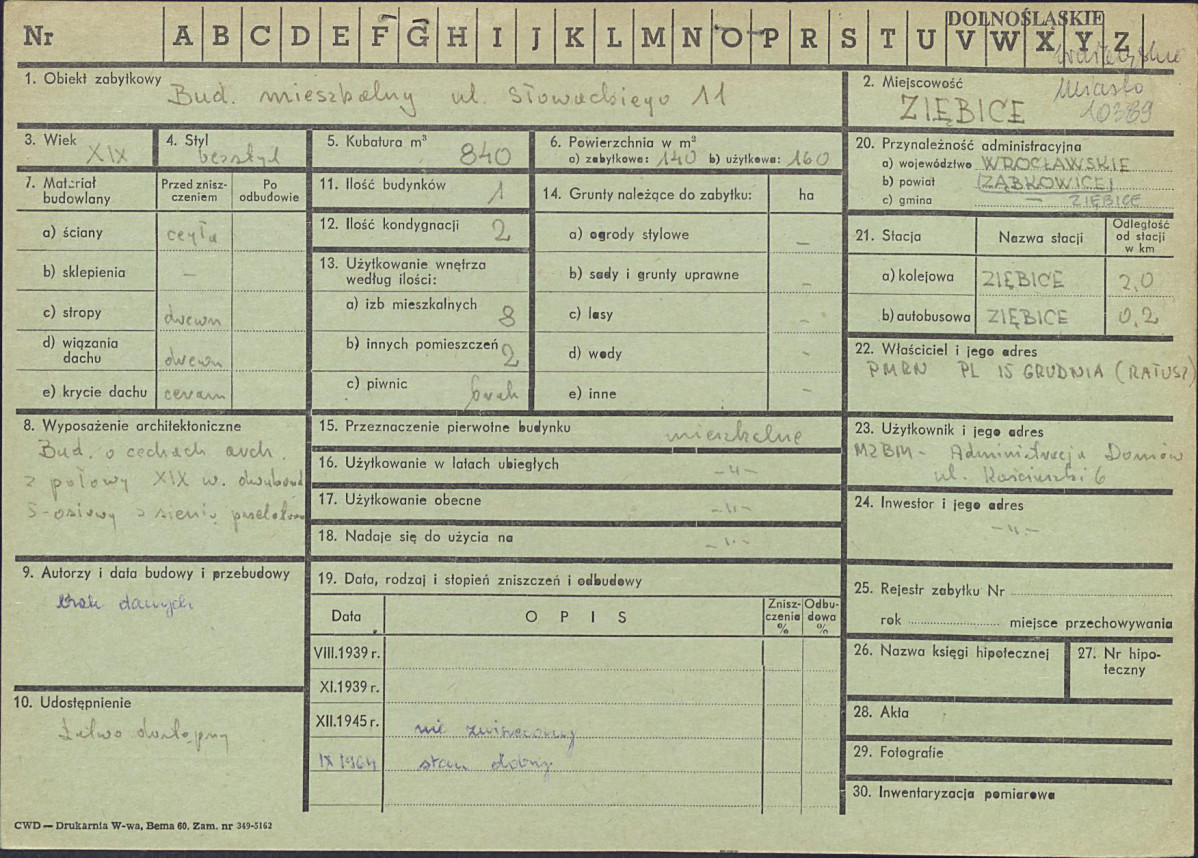 DOLNOŚLĄSKIE
Nr A B C D E F G H I J K L M N O P R S T U V W X Y Z
1. Obiekt zabytkowy
Bud. mieszkalny ul. Słowackiego 11
2. Miejscowość
Miasto
ZIĘBICE 10389
3. Wiek
XIX
4. Styl
bezstyl
5. Kubatura m³
840
6. Powierzchnia w m²
a) zabytkowa: 140 b) użytkowa: 160
20. Przynależność administracyjna
a) województwo WROCŁAWSKIE
b) powiat ZĄBKOWICE
c) gmina — ZIĘBICE
7. Materiał budowlany
Przed zniszczeniem
Po odbudowie
a) ściany cegła
b) sklepienia —
c) stropy drewn
d) wiązania dachu drewn
e) krycie dachu ceram
11. Ilość budynków 1
12. Ilość kondygnacji 2
13. Użytkowanie wnętrza według ilości:
a) izb mieszkalnych 8
b) innych pomieszczeń 2
c) piwnic brak
14. Grunty należące do zabytku: ha
a) ogrody stylowe —
b) sady i grunty uprawne —
c) lasy –
d) wody -
e) inne -
21. Stacja Nazwa stacji Odległość od stacji w km
a) kolejowa ZIĘBICE 2,0
b) autobusowa ZIĘBICE 0,2
22. Właściciel i jego adres
PMRN PL 15 GRUDNIA (RATUSZ)
8. Wyposażenie architektoniczne
Bud. o cechach arch.
z połowy XIX w.
5-osiowy z sienią
15. Przeznaczenie pierwotne budynku mieszkalne
16. Użytkowanie w latach ubiegłych -"-
17. Użytkowanie obecne -"-
18. Nadaje się do użycia na -"-
23. Użytkownik i jego adres
MZBM - Administracja Domów
ul. Kościuszki 6
24. Inwestor i jego adres
-"-
9. Autorzy i data budowy i przebudowy
brak danych
19. Data, rodzaj i stopień zniszczeń i odbudowy
Data OPIS Zniszczenia % Odbudowa %
VIII.1939 r.
XI.1939 r.
XII.1945 r. nie zniszczony
IX 1964 stan dobry
25. Rejestr zabytku Nr
rok miejsce przechowywania
26. Nazwa księgi hipotecznej
27. Nr hipoteczny
10. Udostępnienie
Łatwo dostępny
28. Akta
29. Fotografie
30. Inwentaryzacja pomiarowa
CWD — Drukarnia W-wa, Bema 60. Zam. nr 349-5162